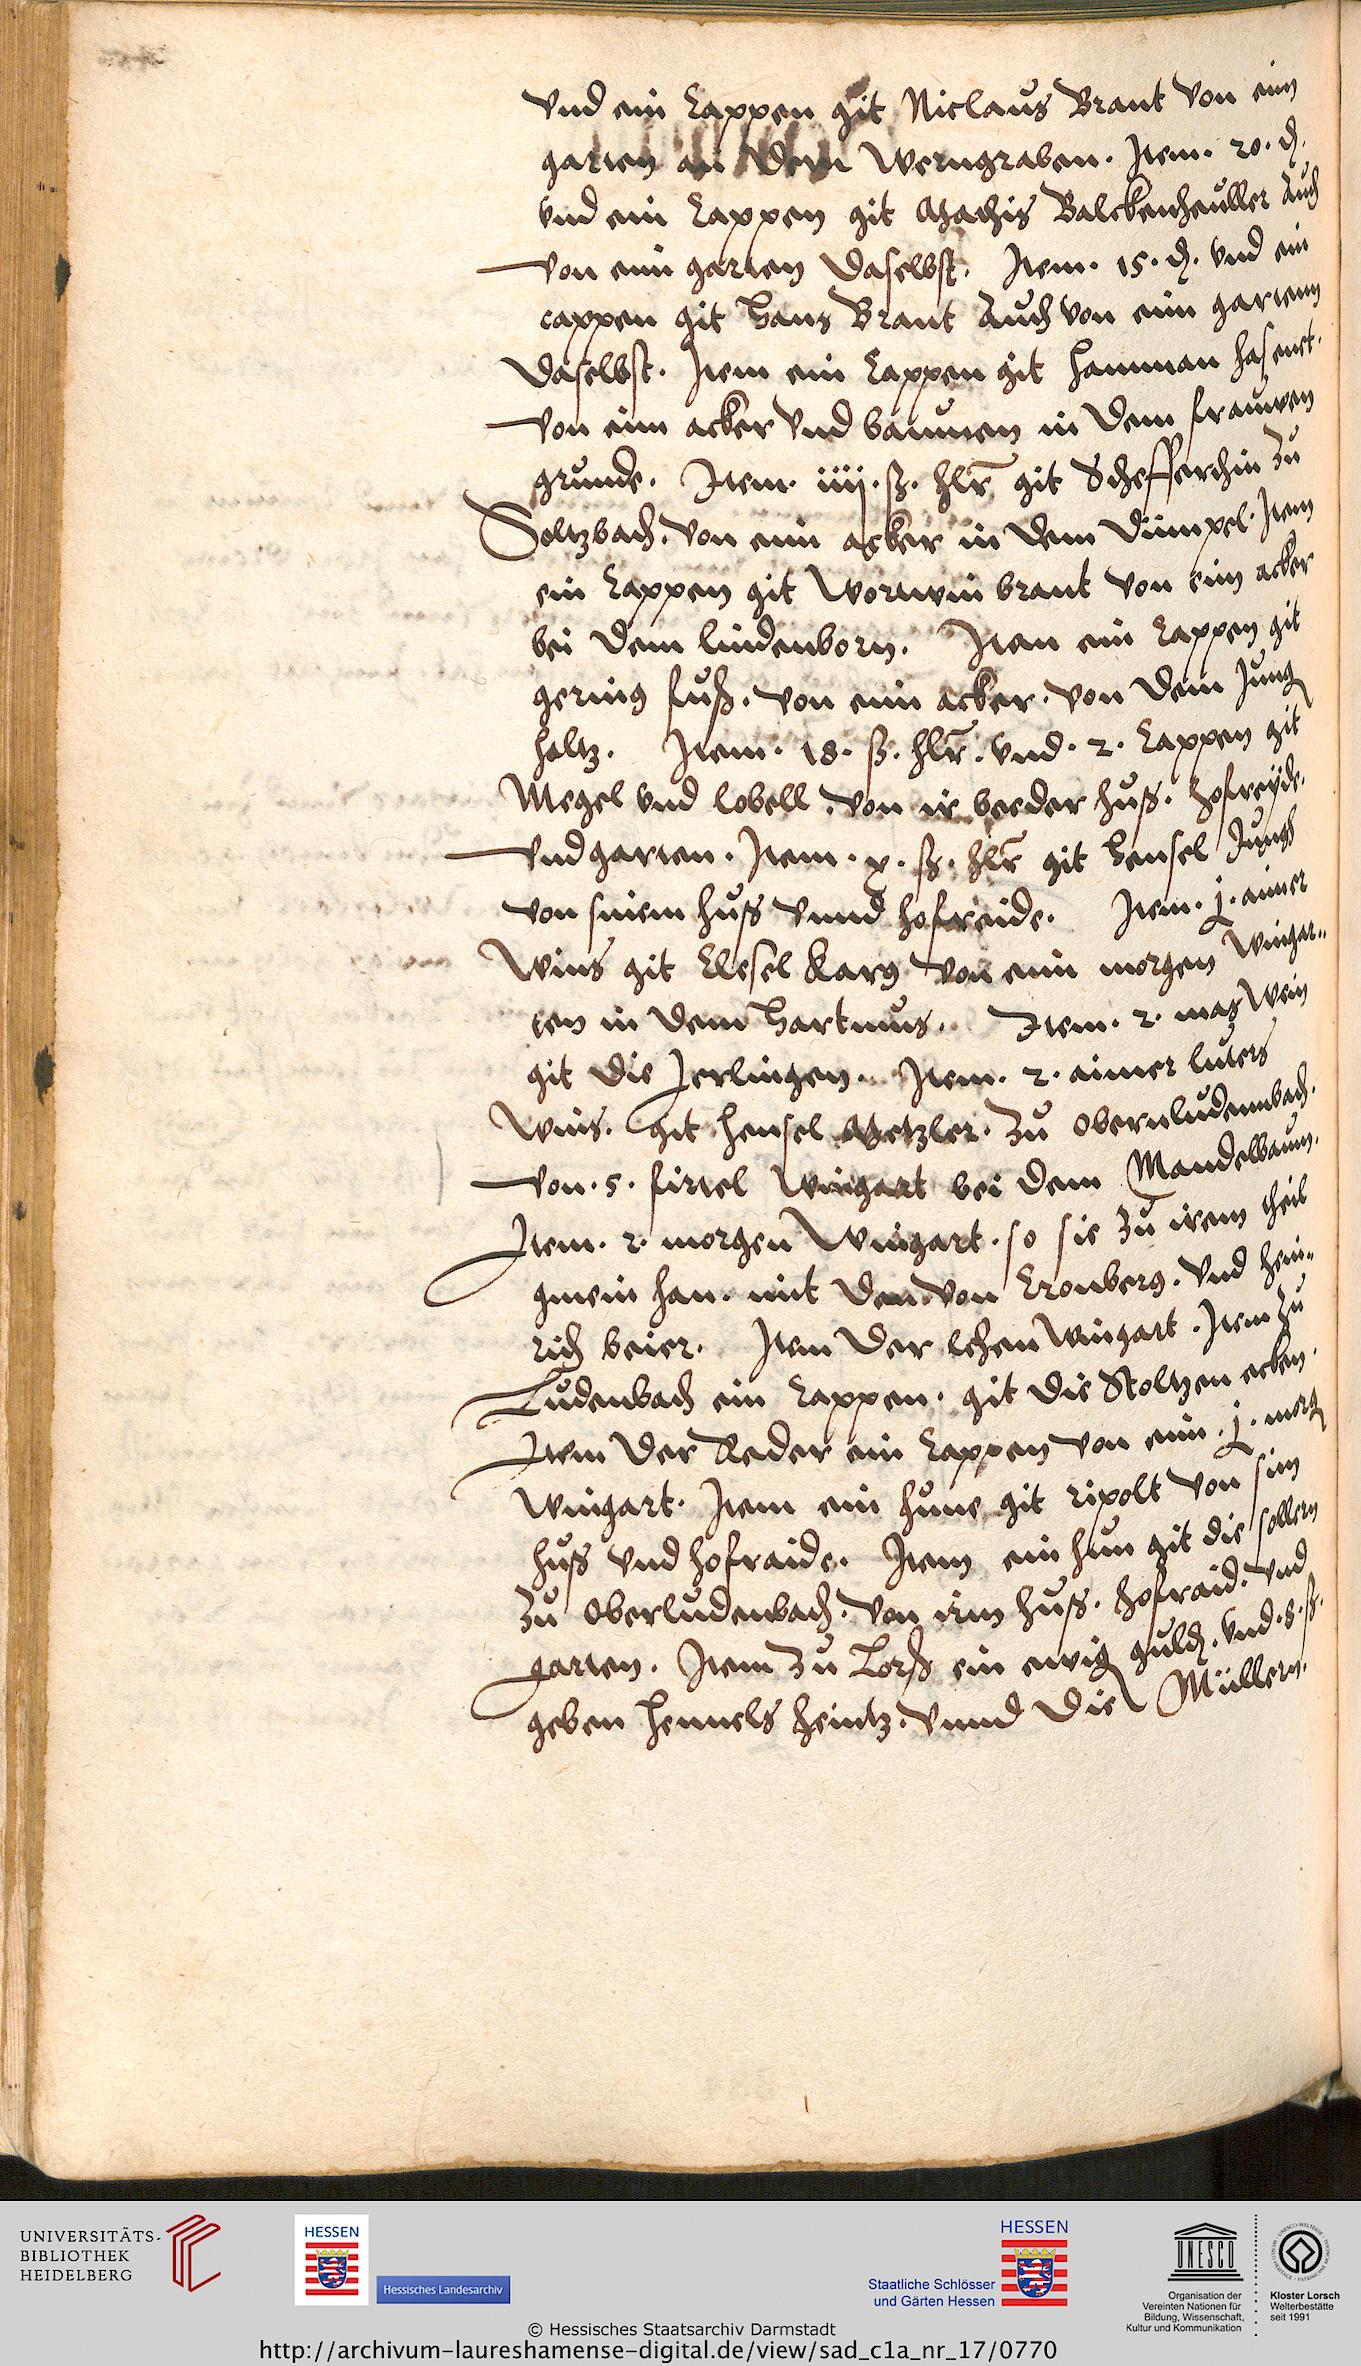 vnd ein Cappen git Niclaus Brant von eim
garten an dem Werngraben. Item. 20. ₰.
vnd ein Cappen git Mathis Balckenheuller Auch
von eim garten daselbst. Item. 15. ₰. vnd ein
cappen git Hans Brant Auch von eim gartenn
daselbst. Item ein Cappen git Hamman hasenet.
von eim acker vnd baumen in dem frauwen
grunde. Item. iiij. ß. hlr git Schefferchin zu
Soltzbach. von eim acker in dem Dümpel. Item
ein Cappen git Wortwin brant von eim acker
bei dem lindenborn. Item ein Cappen git
gering fuß. von eim acker. von dem Jung
holtz. Item. 18. ß. hlr. vnd. 2. Cappen git
Megel vnd lobell. von ir beeder huß. hofreyde.
vnd garten. Item. x. ß. hlr git Hensel Jungk
von sinem huß vnnd hofreide. Item. j. aimer
Wins git Clesel Karg von eim morgen Wingar„
ten in dem Hartmus. Item. 2. mas Wein
git die Jerlingen. Item. 2. aimer luters
Wins. git Hensel Metzler. zu obernludennbach.
von. 5. firtel Wingart bei dem Mandelbaum.
Item. 2. morgen Wingart. so sie zu irem theil
gmein han. mit den von Cronberg. vnd Hein„
rich beier. Item der lehen Wingart. Item zu
Ludenbach ein Cappen. git die Stoltzen ecken.
Item der Reder ein Cappen von eim. j. morg
Wingart. Item ein hune git ripolt von sim
huß vnd hofraide. Item ein hun git die sollern
zu Oberludenbach. von irm huß. hofraid. vnd
garten. Item zu Lorß ein ewig guld. vnd. 8. ß.
geben Hennels Heintz. vnnd die Müllern.
UNIVERSITÄTS-
BIBLIOTHEK
HEIDELBERG
HESSEN
Hessisches Landesarchiv
HESSEN
Staatliche Schlösser
und Gärten Hessen
UNESCO
Organisation der
Vereinten Nationen für
Bildung, Wissenschaft,
Kultur und Kommunikation
Kloster Lorsch
Welterbestätte
seit 1991
© Hessisches Staatsarchiv Darmstadt
http://archivum-laureshamense-digital.de/view/sad_c1a_nr_17/0770